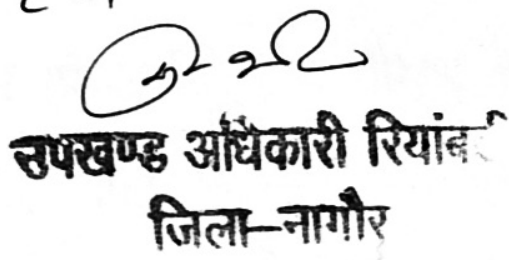 उपखण्ड अधिकारी रियांब
जिला-नागौर